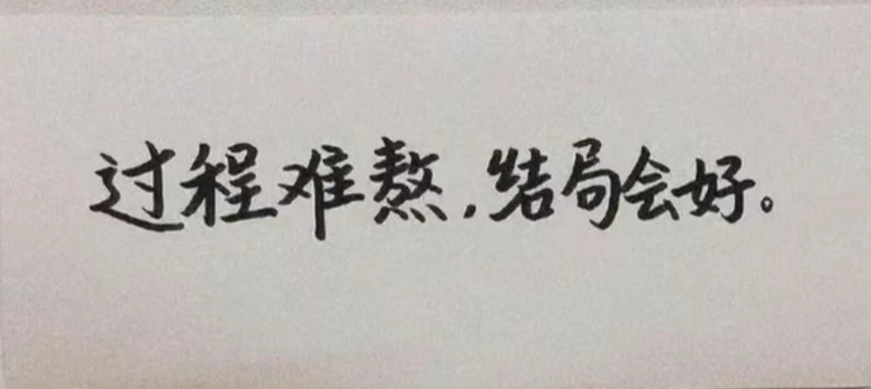 过程难熬,结局会好。